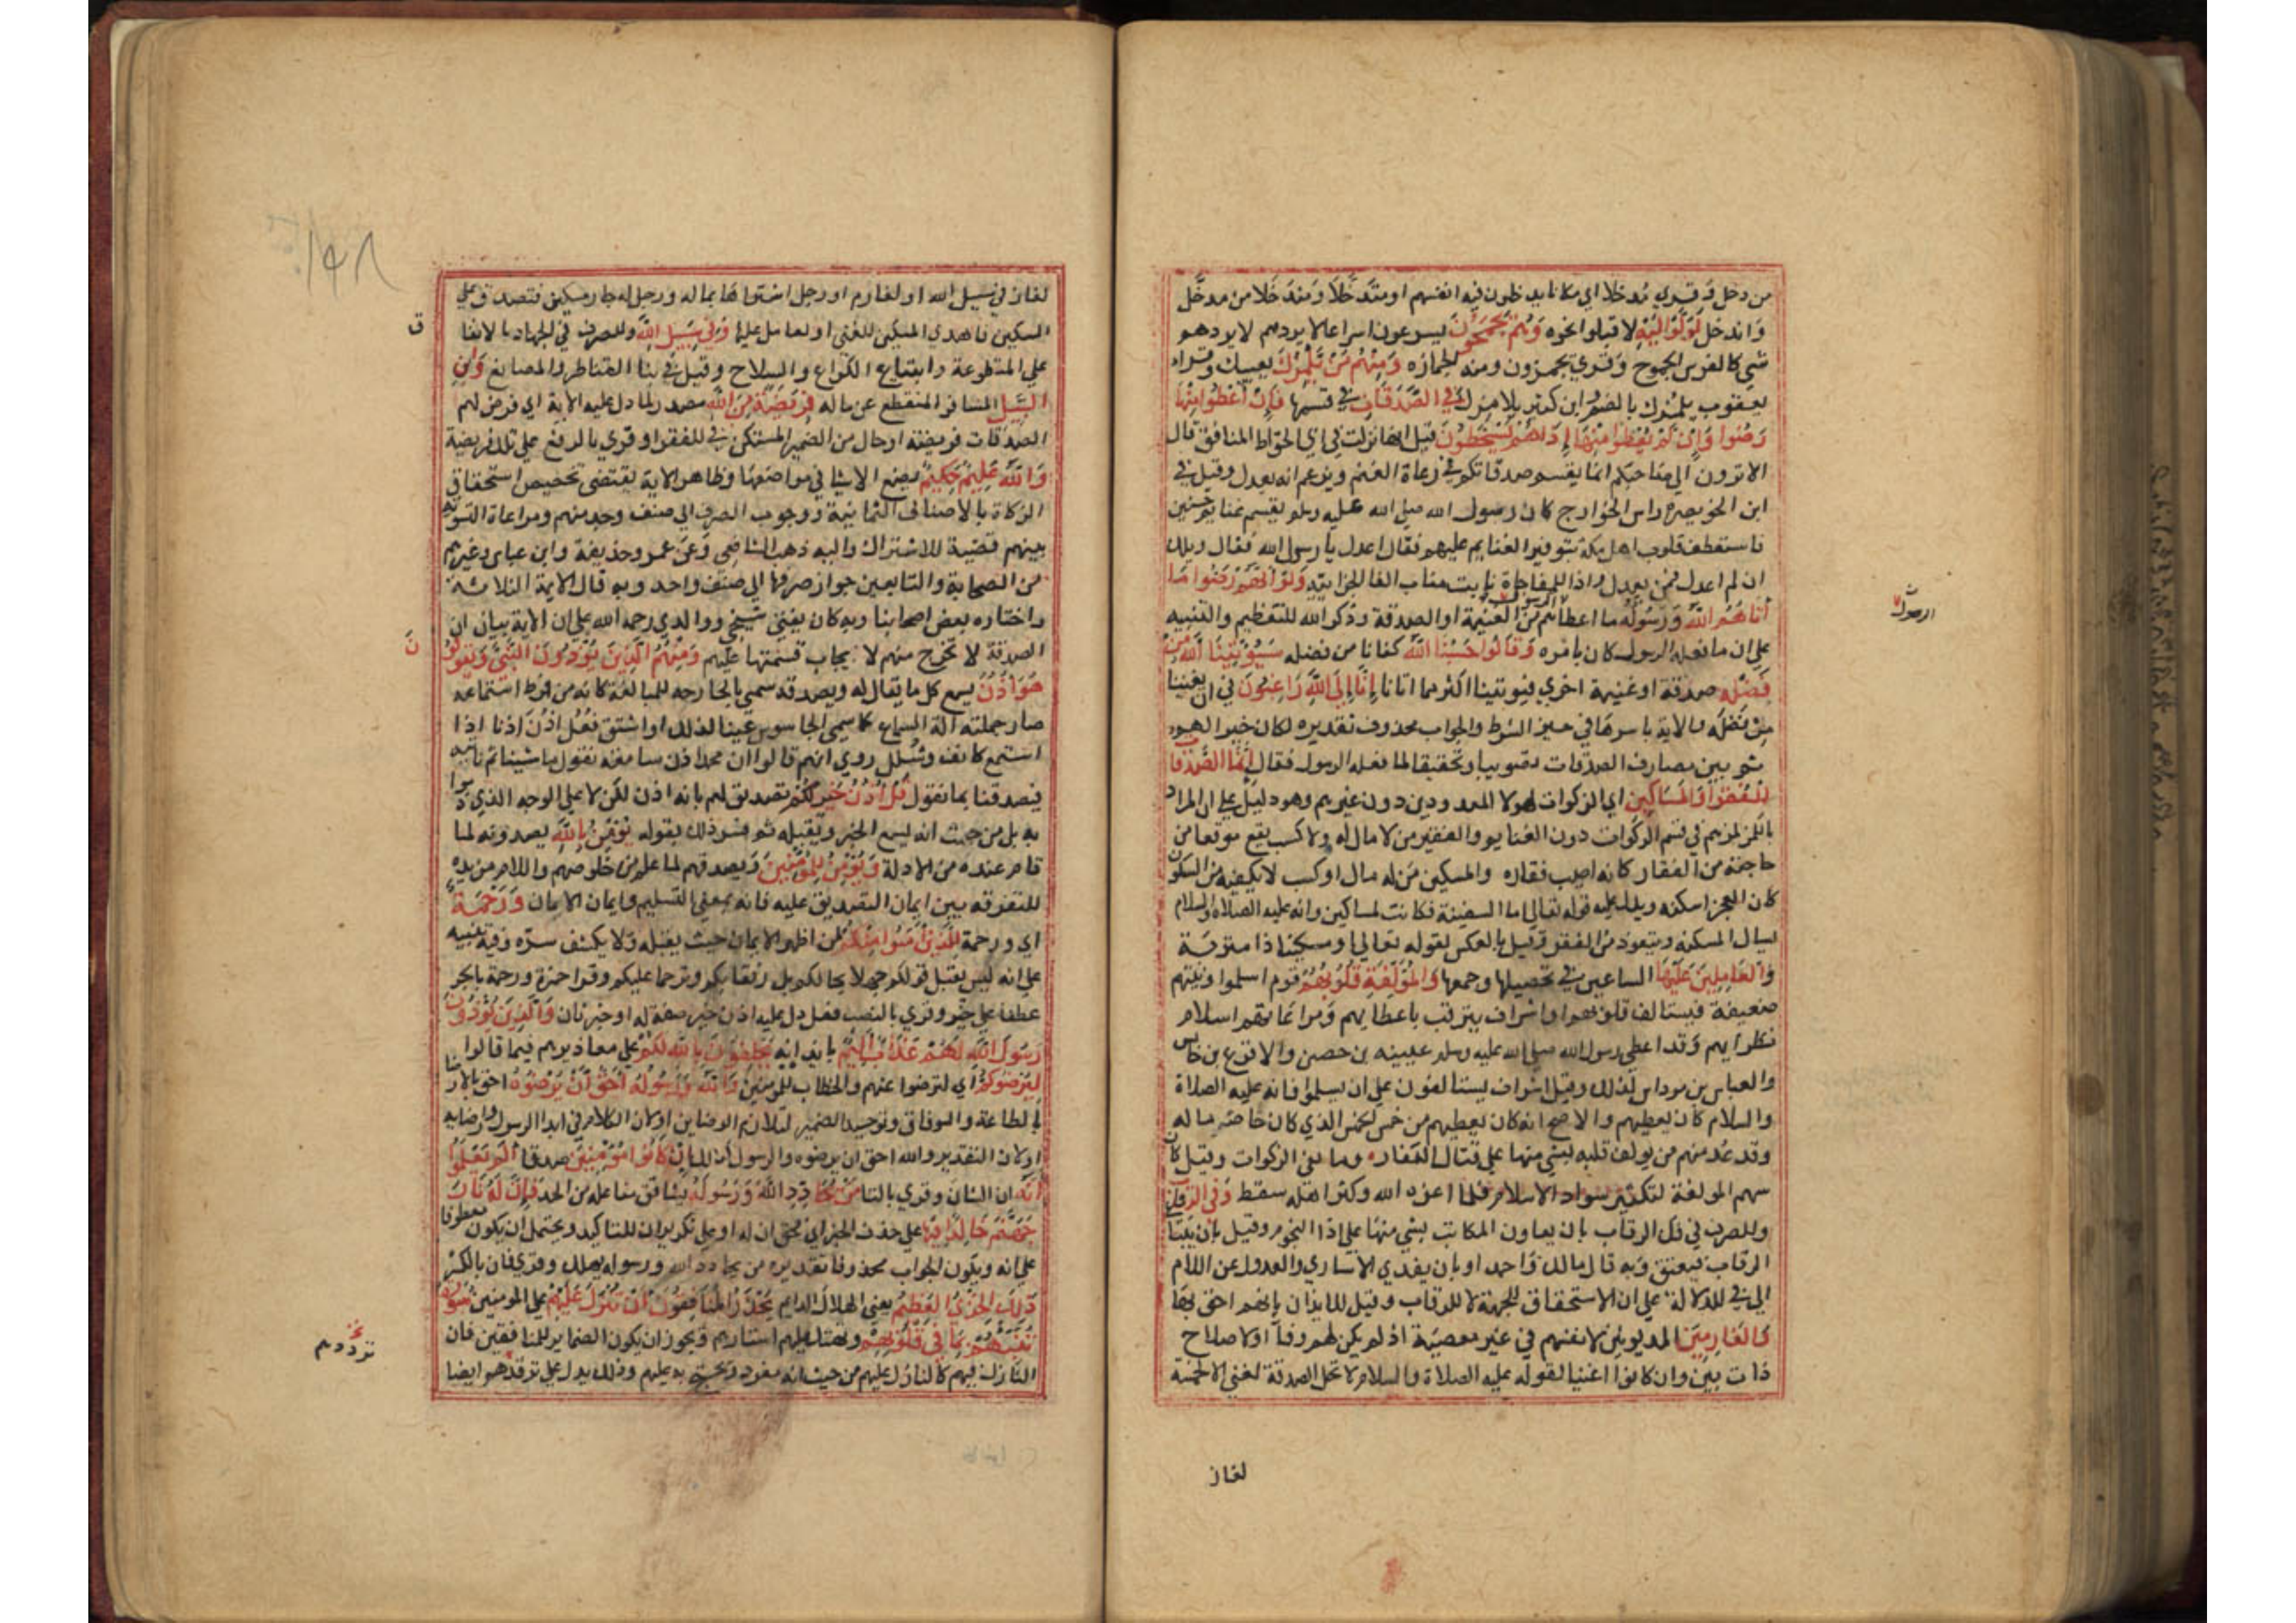 من دخل وقري مدخلا اي مكانا يدخلون فيه انفسهم او متدخلا ومندخلا من مدخل
واندخل لولوا اليه لاقبلوا نحوه وهم يجمحون يسرعون اسراعا لا يردهم لا يردهو
شي كالفرس الجموح وقري يجمزون ومنه الجمازه ومنهم من يلمزك يعيبك وقراه
يعقوب يلمزك بالضم وابن كثير يلامزك في الصدقات في قسمها فان اعطوا منها
رضوا وان لم يعطوا منها اذا هم يسخطون قيل انها نزلت في ابي الجواظ المنافق قال
الا ترون الي صاحبكم انما يقسم صدقاتكم في رعاة الغنم ويزعم انه يعدل وقيل في
ابن الخويصره راس الخوارج كان رسول الله صلي الله عليه وسلم يقسم غنايم حنين
فاستعطف قلوب اهل مكة بتوفير الغنايم عليهم فقال اعدل يا رسول الله فقال ويلك
ان لم اعدل فمن يعدل واذا للمفاجاة نايب مناب الفا الجزايية ولو انهم رضوا ما
اتاهم الله ورسوله ما اعطاهم الرسول من الغنيمة او الصدقة وذكر الله للتعظيم والتنبيه
علي ان ما فعله الرسول كان بامره وقالوا حسبنا الله كفانا من فضله سيوتينا الله من
فضله صدقة او غنيمة اخري فيوتينا اكثر مما اتانا انا الي الله راغبون في ان يغنينا
من فضله والاية باسرها في حيز الشرط والجواب محذوف تقديره لكان خيرا لهم
ثم بين مصارف الصدقات تصويبا وتحقيقا لما فعله الرسول فقال انما الصدقات
للفقرا والمساكين اي الزكوات لهولا المعدودين دون غيرهم وهو دليل علي ان المراد
باللمز لمزهم في قسم الزكوات دون الغنايم والفقير من لا مال له ولا كسب يقع موقعا من
حاجته من الفقار كانه اصيب فقاره والمسكين من له مال او كسب لا يكفيه من السكون
كان العجز اسكنه ويدل عليه قوله تعالي اما السفينة فكانت لمساكين وانه عليه الصلاة والسلام
يسال المسكنه ويتعوذ من الفقر وقيل بالعكس لقوله تعالي او مسكينا ذا متربة
والعاملين عليها الساعين في تحصيلها وجمعها والمولفة قلوبهم قوم اسلموا ونيتهم
ضعيفة فيستالف قلوبهم او اشراف يترقب باعطايهم ومراعاتهم اسلام
نظرايهم وقد اعطي رسول الله صلي الله عليه وسلم عيينه بن حصن والاقرع بن حابس
والعباس بن مرداس لذلك وقيل اشراف يستالفون علي ان يسلموا فانه عليه الصلاة
والسلام كان يعطيهم والاصح انه كان يعطيهم من خمس الخمس الذي كان خاص ماله
وقد عد منهم من يولف قلبه لشي منها علي قتال الكفار وما نعي الزكوات وقيل كان
سهم المولفة لتكثير سواد الاسلام فلما اعزه الله وكثر اهله سقط وفي الرقاب
وللصرف في فك الرقاب بان يعاون المكاتب بشي منها علي اذا النجوم وقيل بان يبتاع
الرقاب فيعتق وبه قال مالك واحمد او بان يفدي الاساري والعدول عن اللام
الي في للدلالة علي ان الاستحقاق للجهة لا للرقاب وقيل للايذان بانهم احق بها
والغارمين المديونين لانفسهم في غير معصية اذ لم يكن لهم وفا او لاصلاح
ذات بين وان كانوا اغنيا لقوله عليه الصلاة والسلام لا تحل الصدقة لغني الا لخمسة
الرسول
لغاز
١٤٨
لغاز في سبيل الله او لغارم او رجل اشتراها بماله ورجل له جار مسكين فتصدق علي
المسكين فاهدي المسكين للغني او لعامل عليها وفي سبيل الله وللصرف في الجهاد بالانفاق
علي المتطوعة وابتياع الكراع والسلاح وقيل في بنا القناطر والمصانع وابن
السبيل المسافر المنقطع عن ماله فريضة من الله مصدر لما دل عليه الاية اي فرض لهم
الصدقات فريضة او حال من الضمير المستكن في للفقرا وقري بالرفع علي تلك فريضة
والله عليم حكيم يضع الاشيا في مواضعها وظاهر الاية يقتضي تخصيص استحقاق
الزكاة بالاصناف الثمانية ووجوب الصرف الي صنف وجد منهم ومراعاة التسوية
بينهم قضية للاشتراك واليه ذهب الشافعي وعن عمر وحذيفة وابن عباس وغيرهم
من الصحابة والتابعين جواز صرفها الي صنف واحد وبه قال الايمة الثلاثة
واختاره بعض اصحابنا وبه كان يفتي شيخي ووالدي رحمه الله علي ان الاية بيان ان
الصدقة لا تخرج منهم لا يجاب قسمتها عليهم ومنهم الذين يوذون النبي ويقولون
هو اذن يسمع كل ما يقال له ويصدقه سمي بالجارحه للمبالغة كانه من فرط استماعه
صار جملته الة السماع كما سمي الجاسوس عينا لذلك او اشتق فعل اذن اذنا اذا
استمع كانف وشلل روي انهم قالوا ان محمدا اذن سامعة نقول ما شينا ثم ناتيه
فيصدقنا بما نقول قل اذن خير لكم تصديق لهم بانه اذن لكن لا علي الوجه الذي ذموا
به بل من حيث انه يسمع الخير ويقبله ثم فسر ذلك بقوله يومن بالله يصدق به لما
قام عنده من الادلة ويومن للمومنين ويصدقهم لما علم من خلوصهم واللام مزيده
للتفرقه بين ايمان التصديق عليه فانه بمعني التسليم وايمان الامان ورحمة
اي ورحمة للذين امنوا منكم لمن اظهر الايمان حيث يقبله ولا يكشف سره وفيه تنبيه
علي انه ليس يقبل قولكم جهلا بحالكم بل رفقا بكم وترحما عليكم وقرا حمزة ورحمة بالجر
عطفا علي خير وقري بالنصب فعل دل عليه اذن خير صفة له او خبر ثان والذين يوذون
رسول الله لهم عذاب اليم بايذايه يحلفون بالله لكم علي معاذيرهم فيما قالوا
ليرضوكم اي لترضوا عنهم والخطاب للمومنين والله ورسوله احق ان يرضوه احق بالارضا
بالطاعة والوفاق وتوحيد الضمير لتلازم الرضاين او لان الكلام في ايذا الرسول وارضايه
او لان التقدير والله احق ان يرضوه والرسول كذلك ان كانوا مومنين صدقا الم يعلموا
انه ان الشان وقري بالتا من يحادد الله ورسوله يشاقق مفاعلة من الحد فان له نار
جهنم خالدا فيها علي حذف الخبر اي فحق ان له او علي تكرير ان للتاكيد ويحتمل ان يكون معطوفا
علي انه ويكون الجواب محذوفا تقديره من يحادد الله ورسوله يهلك وقري فان بالكسر
ذلك الخزي العظيم يعني الهلاك الدايم يحذر المنافقون ان تنزل عليهم علي المومنين سورة
تنبيهم بما في قلوبهم وتهتك عليهم استارهم ويجوز ان يكون الضماير للمنافقين فان
النازل فيهم كالنازل عليهم من حيث انه مقرو ومحتج به عليهم وذلك يدل علي ترددهم ايضا
ق
ن
ترددهم